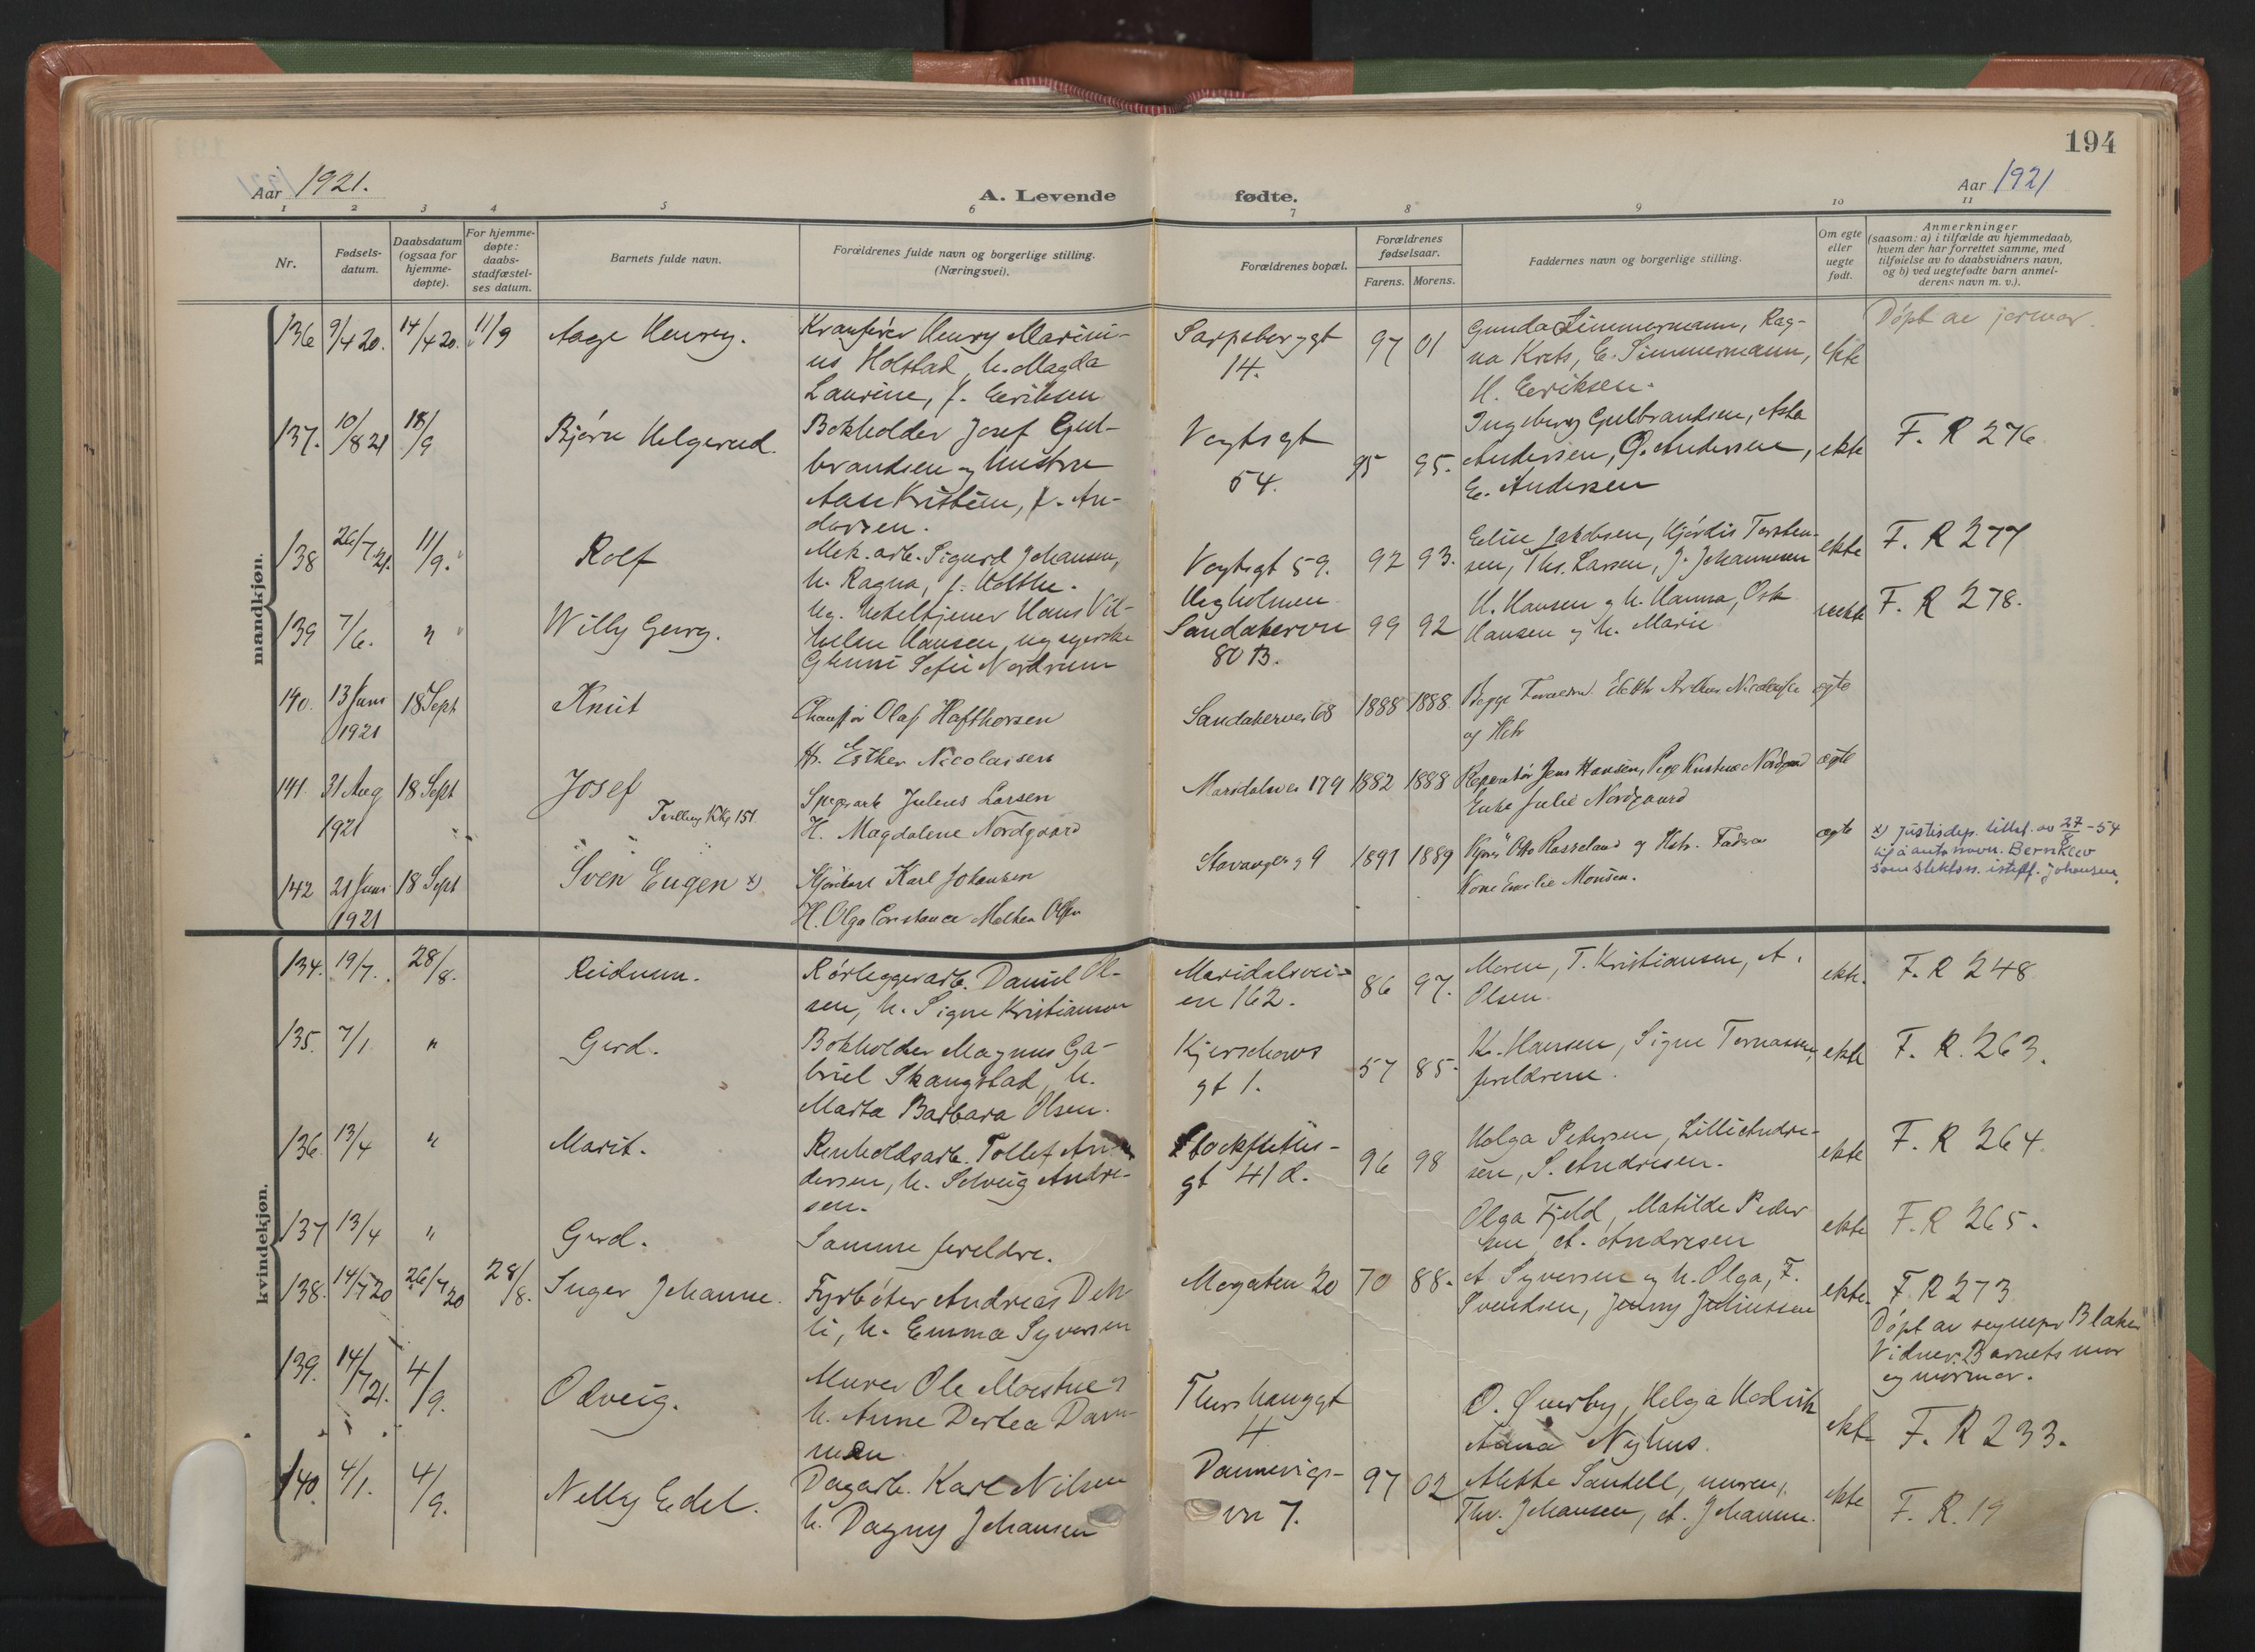 194
Aar 1921.
A. Levende fødte.
Aar 1921
1 2 3 4 5 6 7 8 9 10 11
Nr.
Fødsels-
datum.
Daabsdatum
(ogsaa for
hjemme-
døpte).
For hjemme-
døpte:
daabs-
stadfæstel-
ses datum.
Barnets fulde navn.
Forældrenes fulde navn og borgerlige stilling.
(Næringsvei).
Forældrenes bopæl.
Forældrenes
fødselsaar.
Farens. Morens.
Faddernes navn og borgerlige stilling.
Om egte
eller
uegte
født.
Anmerkninger
(saasom: a) i tilfælde av hjemmedaab,
hvem der har forrettet samme, med
tilføielse av to daabsvidners navn,
og b) ved uegtefødte barn anmel-
derens navn m. v.).
mandkjøn.
136 9/4 20. 14/4 20. 11/9
Aage Henry.
Kranfører Henry Marini-
us Holstad, h. Magda
Laurine, f. Eeriksen
Sarpsborggt
14.
97 01
Gunda Simmermann, Rag-
na Krets, E. Simmermann,
H. Eeriksen.
ekte
Døpt av jormor.
137. 10/8 21 18/9
Bjørn Helgerud.
Bokholder Josef Gul-
brandsen og hustru
Aase Kristine, f. An-
dersen.
Vogtsgt
54.
95 95.
Ingeborg Gulbrandsen, Asta
Andersen, O. Andersen,
E. Andersen
ekte
F. R 276
138 26/7 21. 11/9.
Rolf
Mek. arb. Sigurd Johansen,
h. Ragna, f. Holthe.
Vogtsgt 59.
92 93.
Eline Jakobsen, Hjørdis Torsten-
sen, Ths. Larsen, J. Johannesen
ekte
F. R 277
139 7/6. "
Willy Georg.
Ug. hoteltjener Hans Vil-
helm Hansen, ug syerske
Gunni Sofie Nordrum
Hegholmen
Sandakervn
80 B.
99 92
H. Hansen og h. Hanna, Osk.
Hansen og h. Marie
uekte
F. R 278.
140. 13 Juni
1921
18 Sept
Knut
Chauffør Olaf Hafthorsen
H. Esther Nicolaisen
Sandakervei 68
1888 1888
og Hstr
egte
141. 31 Aug
1921
18 Sept
Josef
Tvilling Kkj 151
Julius Larsen
H. Magdalene Nordgaard
Maridalsvei 179
1882 1888
Reparatør Jens Hansen, Pige Kristine Nordgaard
Enke Julie Nordgaard
egte
142 21 Juni
1921
18 Sept
Sven Eugen x)
Kjørekarl Karl Johansen
H. Olga Constance Mathea Olsen
Stavangergt 9
1891 1889
Otto Rasseland og Hstr. Faderen
Kone Emilie Monsen.
egte
x) Justisdep. tillat. av 27/8 - 54
til å anta navn. Bernklev
som slektsn. istedf. Johansen.
kvindekjøn.
134. 19/7. 28/8.
Reidunn.
Rørleggerarb. Daniel Ol-
sen, h. Signe Kristiansen
Maridalsvei-
en 162.
86 97.
Moren, T. Kristiansen, A.
Olsen.
ekte.
F. R 248
135. 7/1. "
Gerd.
Bokholder Magnus Ga-
briel Skangstad, h.
Marta Barbara Olsen.
Kjerschows
gt 1.
57 85.
K. Hansen, Signe
foreldrene.
ekte
F. R. 263.
136. 13/4 "
Marit.
Renholdsarb. Tollef An-
dersen, h. Solveig Andre-
sen.
Stockfleths-
gt 41 d.
96 98
Helga Petersen, Lilli Andre-
sen, S. Andresen.
ekte
F. R 264
137 13/4 "
Gerd.
Samme foreldre.
Olga Fjeld, Matilde Peder
sen, A. Andresen
ekte
F. R 265.
138. 14/7 20 26/7 20 28/8.
Inger Johanne.
Fyrbøter Andreas Deh-
li, h. Emma Syversen
Mogaten 20
70 88.
A. Syversen og h. Olga, F.
Svendsen, Jenny Juliussen
ekte.
F R 273
Døpt av sognepr Blaker
Vidner: Barnets mor
og mormor.
139. 14/7 21. 4/9.
Odveig.
Murer Ole Moestue,
h. Anne Dortea Dam-
men
Thorshauggt
4
O. Øverby, Helga
Anna Nyhus.
ekte
F. R 233.
140. 4/1. 4/9.
Nelly Edel.
Dagarb. Karl Nilsen
h. Dagny Johansen
Dannevigs-
vn 7.
97 02
Alette Sandell, moren,
Thv. Johansen, A. Johannes.
ekte
F. R. 19